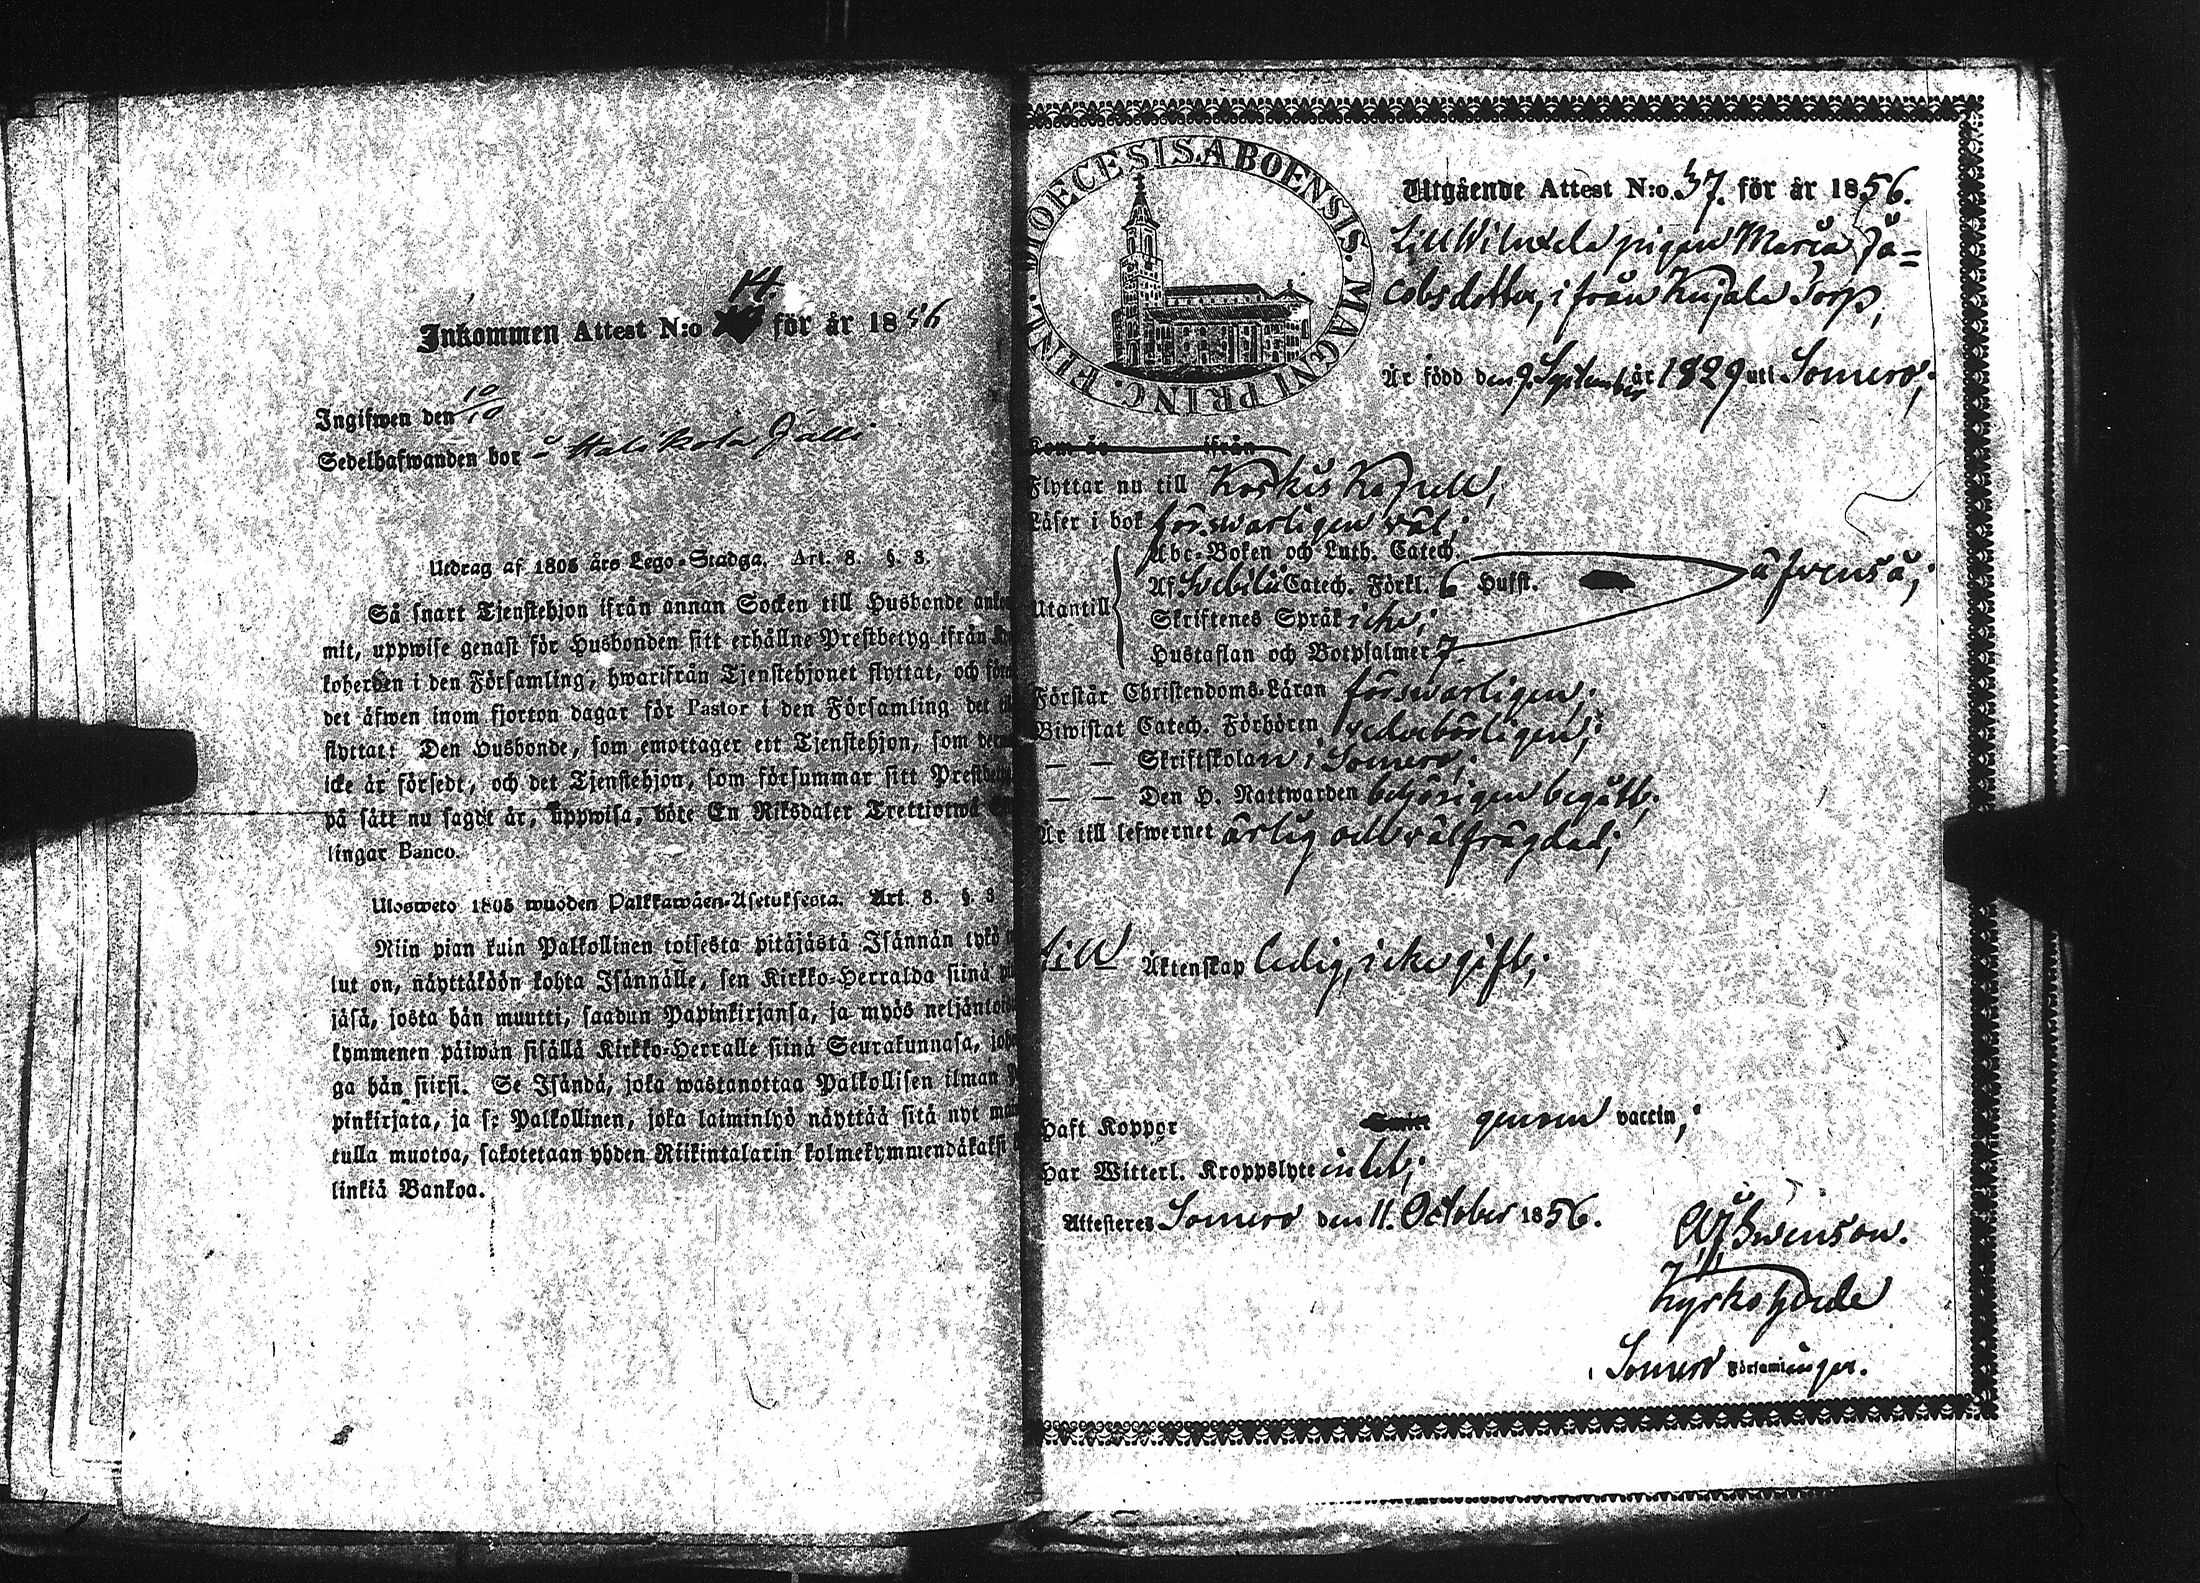 14.
Inkommen Attest N:o för år 1856
Ingifwen den 10/10
Sedelhafwanden bor å Jalli
Utdrag af 1805 års Lego-Stadga. Art. 8. §. 3.
Så snart Tjenstehjon ifrån annan Socken till Husbonde
mit, uppwise genast för Husbonden sitt erhållne Prestbetyg ifrån
koherden i den Församling, hwarifrån Tjenstehjonet flyttat, och
det äfwen inom fjorton dagar för Pastor i den Församling det
flyttat: Den Husbonde, som emottager ett Tjenstehjon, som
icke är försedt, och det Tjenstehjon, som försummar sitt
på sätt nu sagdt är, uppwisa, böte En Riksdaler Trettiotwå
lingar Banco.
Ulosweto 1805 wuoden Palkkawäen-Asetuksesta. Art. 8. §. 3
Niin pian kuin Palkollinen toisesta pitäjästä Isännän tykö
lut on, näyttäköön kohta Isännälle, sen Kirkko-Herralda siinä
jäsä, josta hän muutti, saadun Papinkirjansa, ja myös
kymmenen päiwän sisällä Kirkko-Herralle siinä Seurakunnasa,
ga hän siirsi. Se Isändä, joka wastanottaa Palkollisen ilman
pinkirjata, ja se Palkollinen, joka laiminlyö näyttää sitä nyt
tulla muotoa, sakotetaan yhden Riikintalarin kolmekymmendäkaksi
linkiä Bankoa.
DIOECESIS ABOENSIS. MAGNI PRINC. FINL.
Utgående Attest N:o. 37. för år 1856.
pigan Maria Ja=
cobsdotter, ifrån Kujala Torp,
Är född den 9. September år 1829 uti Somero;
Kom år ifrån
Flyttar nu till Koskis Kapell,
Läser i bok förswarligen wäl;
Utantill
Abc-Boken och Luth. Catech.
Af Svebilii Catech. Förkl. 6 Hufst.
äfvenså;
Skriftenes Språk icke;
Hustaflan och Botpsalmer 7
Förstår Christendoms-Läran förswarligen;
Biwistat Catech. Förhören wederbörligen;
— — Skriftskolan i Somero;
— — Den H. Nattwarden behörigen begått;
Är till lefwernet ärlig och wälfrägdad;
till Äktenskap ledig, icke gift;
Haft Koppor genom vaccin;
Har Witterl. Kroppslyte intet;
Attesteres Somero den 11. October 1856.
Swenson.
Kyrkoherde
Somero Församlingar.